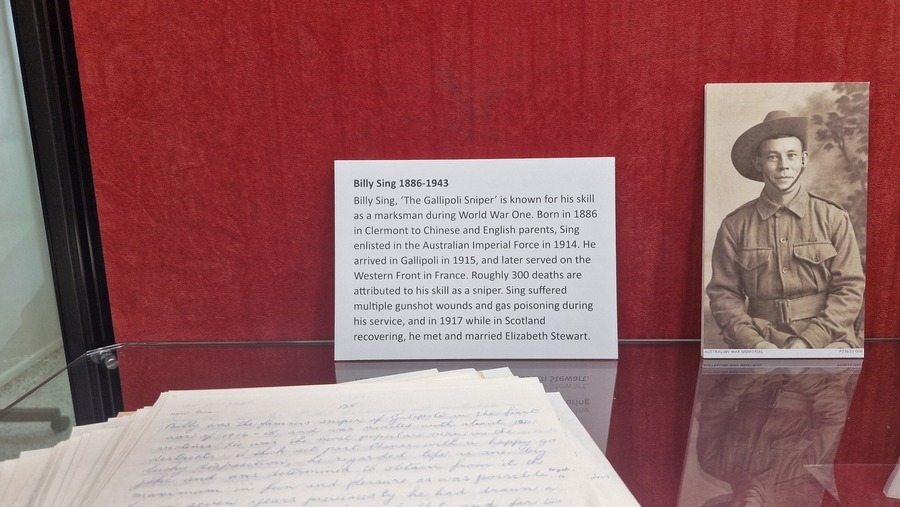 Billy Sing 1886-1943
Billy Sing, 'The Gallipoli Sniper' is known for his skill
as a marksman during World War One. Born in 1886
in Clermont to Chinese and English parents, Sing
enlisted in the Australian Imperial Force in 1914. He
arrived in Gallipoli in 1915, and later served on the
Western Front in France. Roughly 300 deaths are
attributed to his skill as a sniper. Sing suffered
multiple gunshot wounds and gas poisoning during
his service, and in 1917 while in Scotland
recovering, he met and married Elizabeth Stewart.
AUSTRALIAN WAR MEMORIAL
Billy was the famous sniper of Gallipoli in the first
war of 1914 and was credited with at least
victims. He was the most popular man in the
district. A thick set part Chinese with a happy go
lucky disposition, he regarded life as one big
joke and was determined to obtain from it the
maximum in fun and pleasure as was possible.
seven years previously he had drawn a